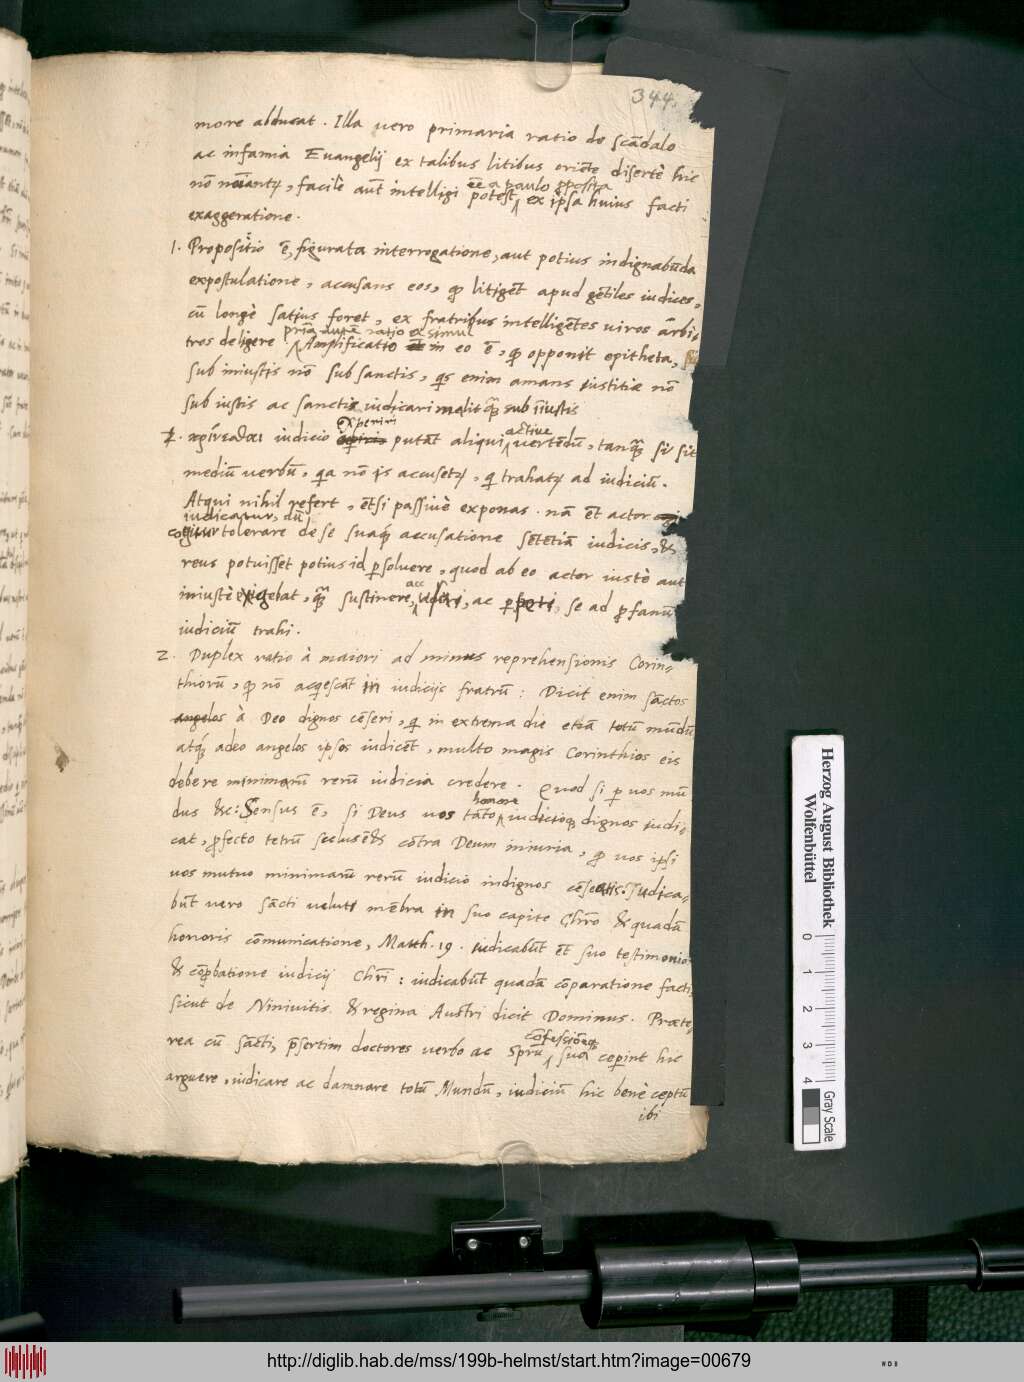 344.
more abducat. Illa vero primaria ratio de scādalo
ac infamia Euangelij ex talibus litibus oriēte disertè hic
nō , facilè aūt intelligi potest ex ipsa huius facti
ēē a paulo
exaggeratione.
1. Propositio ē, figurata interrogatione, aut potius indignabūda
expostulatione, accusans eos, litigēt apud gētiles iudices,
cū longè satius foret, ex fratribus intelligētes viros arbi-
tros deligere. Amplificatio in eo ē, opponit epitheta,
ratio ex simul
sub iniustis nō sub sanctis, enim amans iustitiæ nō
sub iustis ac sanctis iudicari malit sub iīustis
2. iudicio putāt aliqui vertēdū, tanq̄ si sit
experiri
active
mediū verbū, qa nō is accusetʳ, trahatʳ ad iudiciū.
Atqui nihil refert, ētsi passivè exponas. nā ēt actor
iudicatur, dū
cogitur tolerare de se suaq́ accusatione sētētiā iudicis, &
reus potuisset potius id psoluere, quod ab eo actor iustè aut
iniustè exigebat, sustinere, ac , se ad pfanū
iudiciū trahi.
2. Duplex ratio à maiori ad minus reprehensionis Corin-
thiorū, nō acqescāt in iudicijs fratrū: Dicit enim sāctos
angelos à Deo dignos cēseri, in extrema die etiā totū mūdū
atq́ adeo angelos ipsos iudicēt, multo magis Corinthios eis
debere minimarū rerū iudicia credere. Quod si p vos mū
dus &c: Sensus ē, si Deus vos tāto iudicioq dignos iudi-
honore
cat, pfecto tetrū scelus ē & cōtra Deum iniuria, vos ipsi
vos mutuo minimarū rerū iudicio indignos cēseatis: Iudica-
būt vero sācti veluti mēbra in suo capite Chrō & quadā
honoris cōmunicatione, Matth. 19. iudicabūt ēt suo testimonio
& cōpbatione iudicij Chrī: iudicabūt quadā cōparatione facti,
sicut de Niniuitis & regina Austri dicit Dominus. Præte-
rea cū sācti, psertim doctores verbo ac Spū sua ceperint hic
cōfessiōeq
arguere, iudicare ac damnare totū Mundū, iudiciū hic benè ceptū
ibi
Herzog August Bibliothek
Wolfenbüttel
0 1 2 3 4
Gray Scale
http://diglib.hab.de/mss/199b-helmst/start.htm?image=00679
WDB